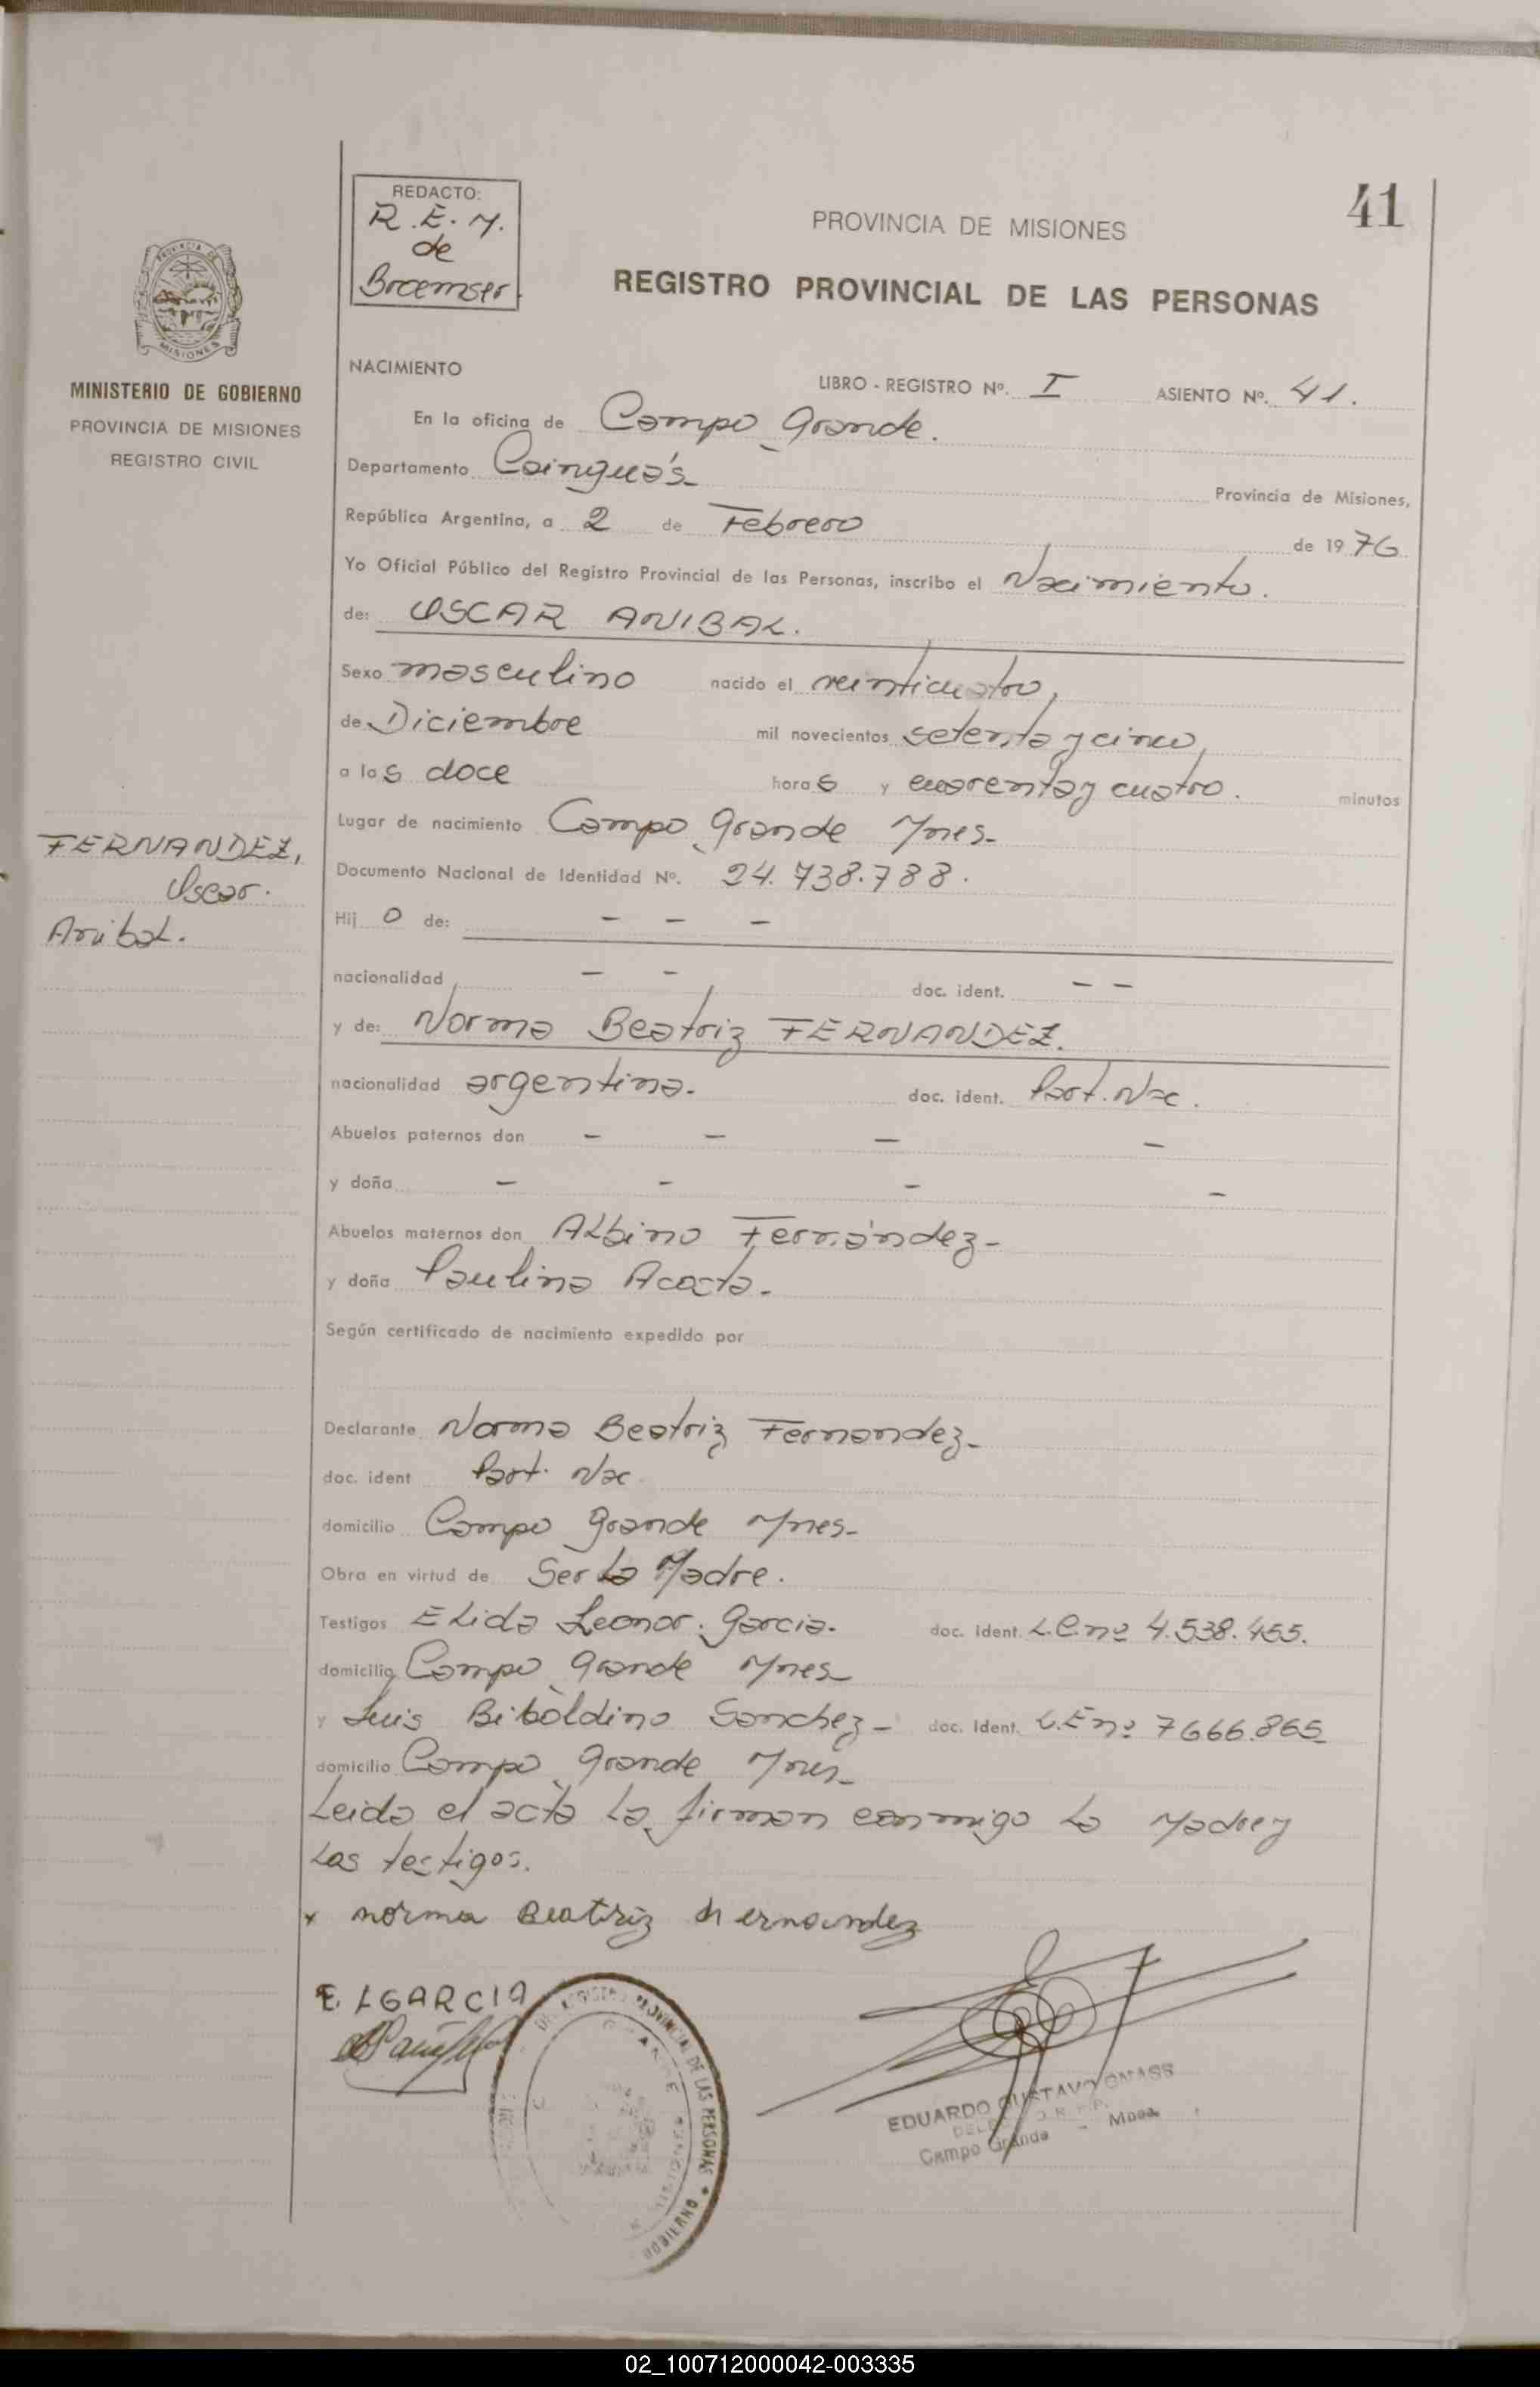 REDACTO:
R. E. M.
de
Broemser.
41
PROVINCIA DE MISIONES
REGISTRO PROVINCIAL DE LAS PERSONAS
MINISTERIO DE GOBIERNO
PROVINCIA DE MISIONES
REGISTRO CIVIL
NACIMIENTO
LIBRO - REGISTRO Nº. I ASIENTO Nº. 41.
En la oficina de Campo Grande.
Departamento Cainguás- Provincia de Misiones,
República Argentina, a 2 de Febrero de 1976
Yo Oficial Público del Registro Provincial de las Personas, inscribo el Nacimiento.
de: OSCAR ANIBAL.
Sexo masculino nacido el veinticuatro,
de Diciembre mil novecientos setenta y cinco,
a las doce horas y cuarenta y cuatro. minutos
Lugar de nacimiento Campo Grande Mnes-
FERNANDEZ,
Oscar.
Anibal.
Documento Nacional de Identidad Nº. 24.738.788.
Hijo de: - - -
nacionalidad - - doc. ident. - -
y de: Norma Beatriz FERNANDEZ.
nacionalidad argentina. doc. ident. Part. Nac.
Abuelos paternos don - - - -
y doña - - - -
Abuelos maternos don Albino Fernández-
y doña Paulina Acosta-
Según certificado de nacimiento expedido por
Declarante Norma Beatriz Fernandez-
doc. ident Part. Nac.
domicilio Campo Grande Mnes-
Obra en virtud de Ser la Madre.
Testigos Elida Leonor Garcia. doc. ident. L.C. nº 4.538.455.
domicilio Campo Grande Mnes-
y Luis Biboldino Sanchez- doc. ident. L.E nº 7666.865
domicilio Campo Grande Mnes-
Leida el acta la firman conmigo la Madre y
los testigos.
x norma Beatriz Fernandez
E. L GARCIA
REGISTRO PROVINCIAL DE LAS PERSONAS * GOBIERNO
EDUARDO GUSTAVO
Campo Grande - Mnes.
02_100712000042-003335